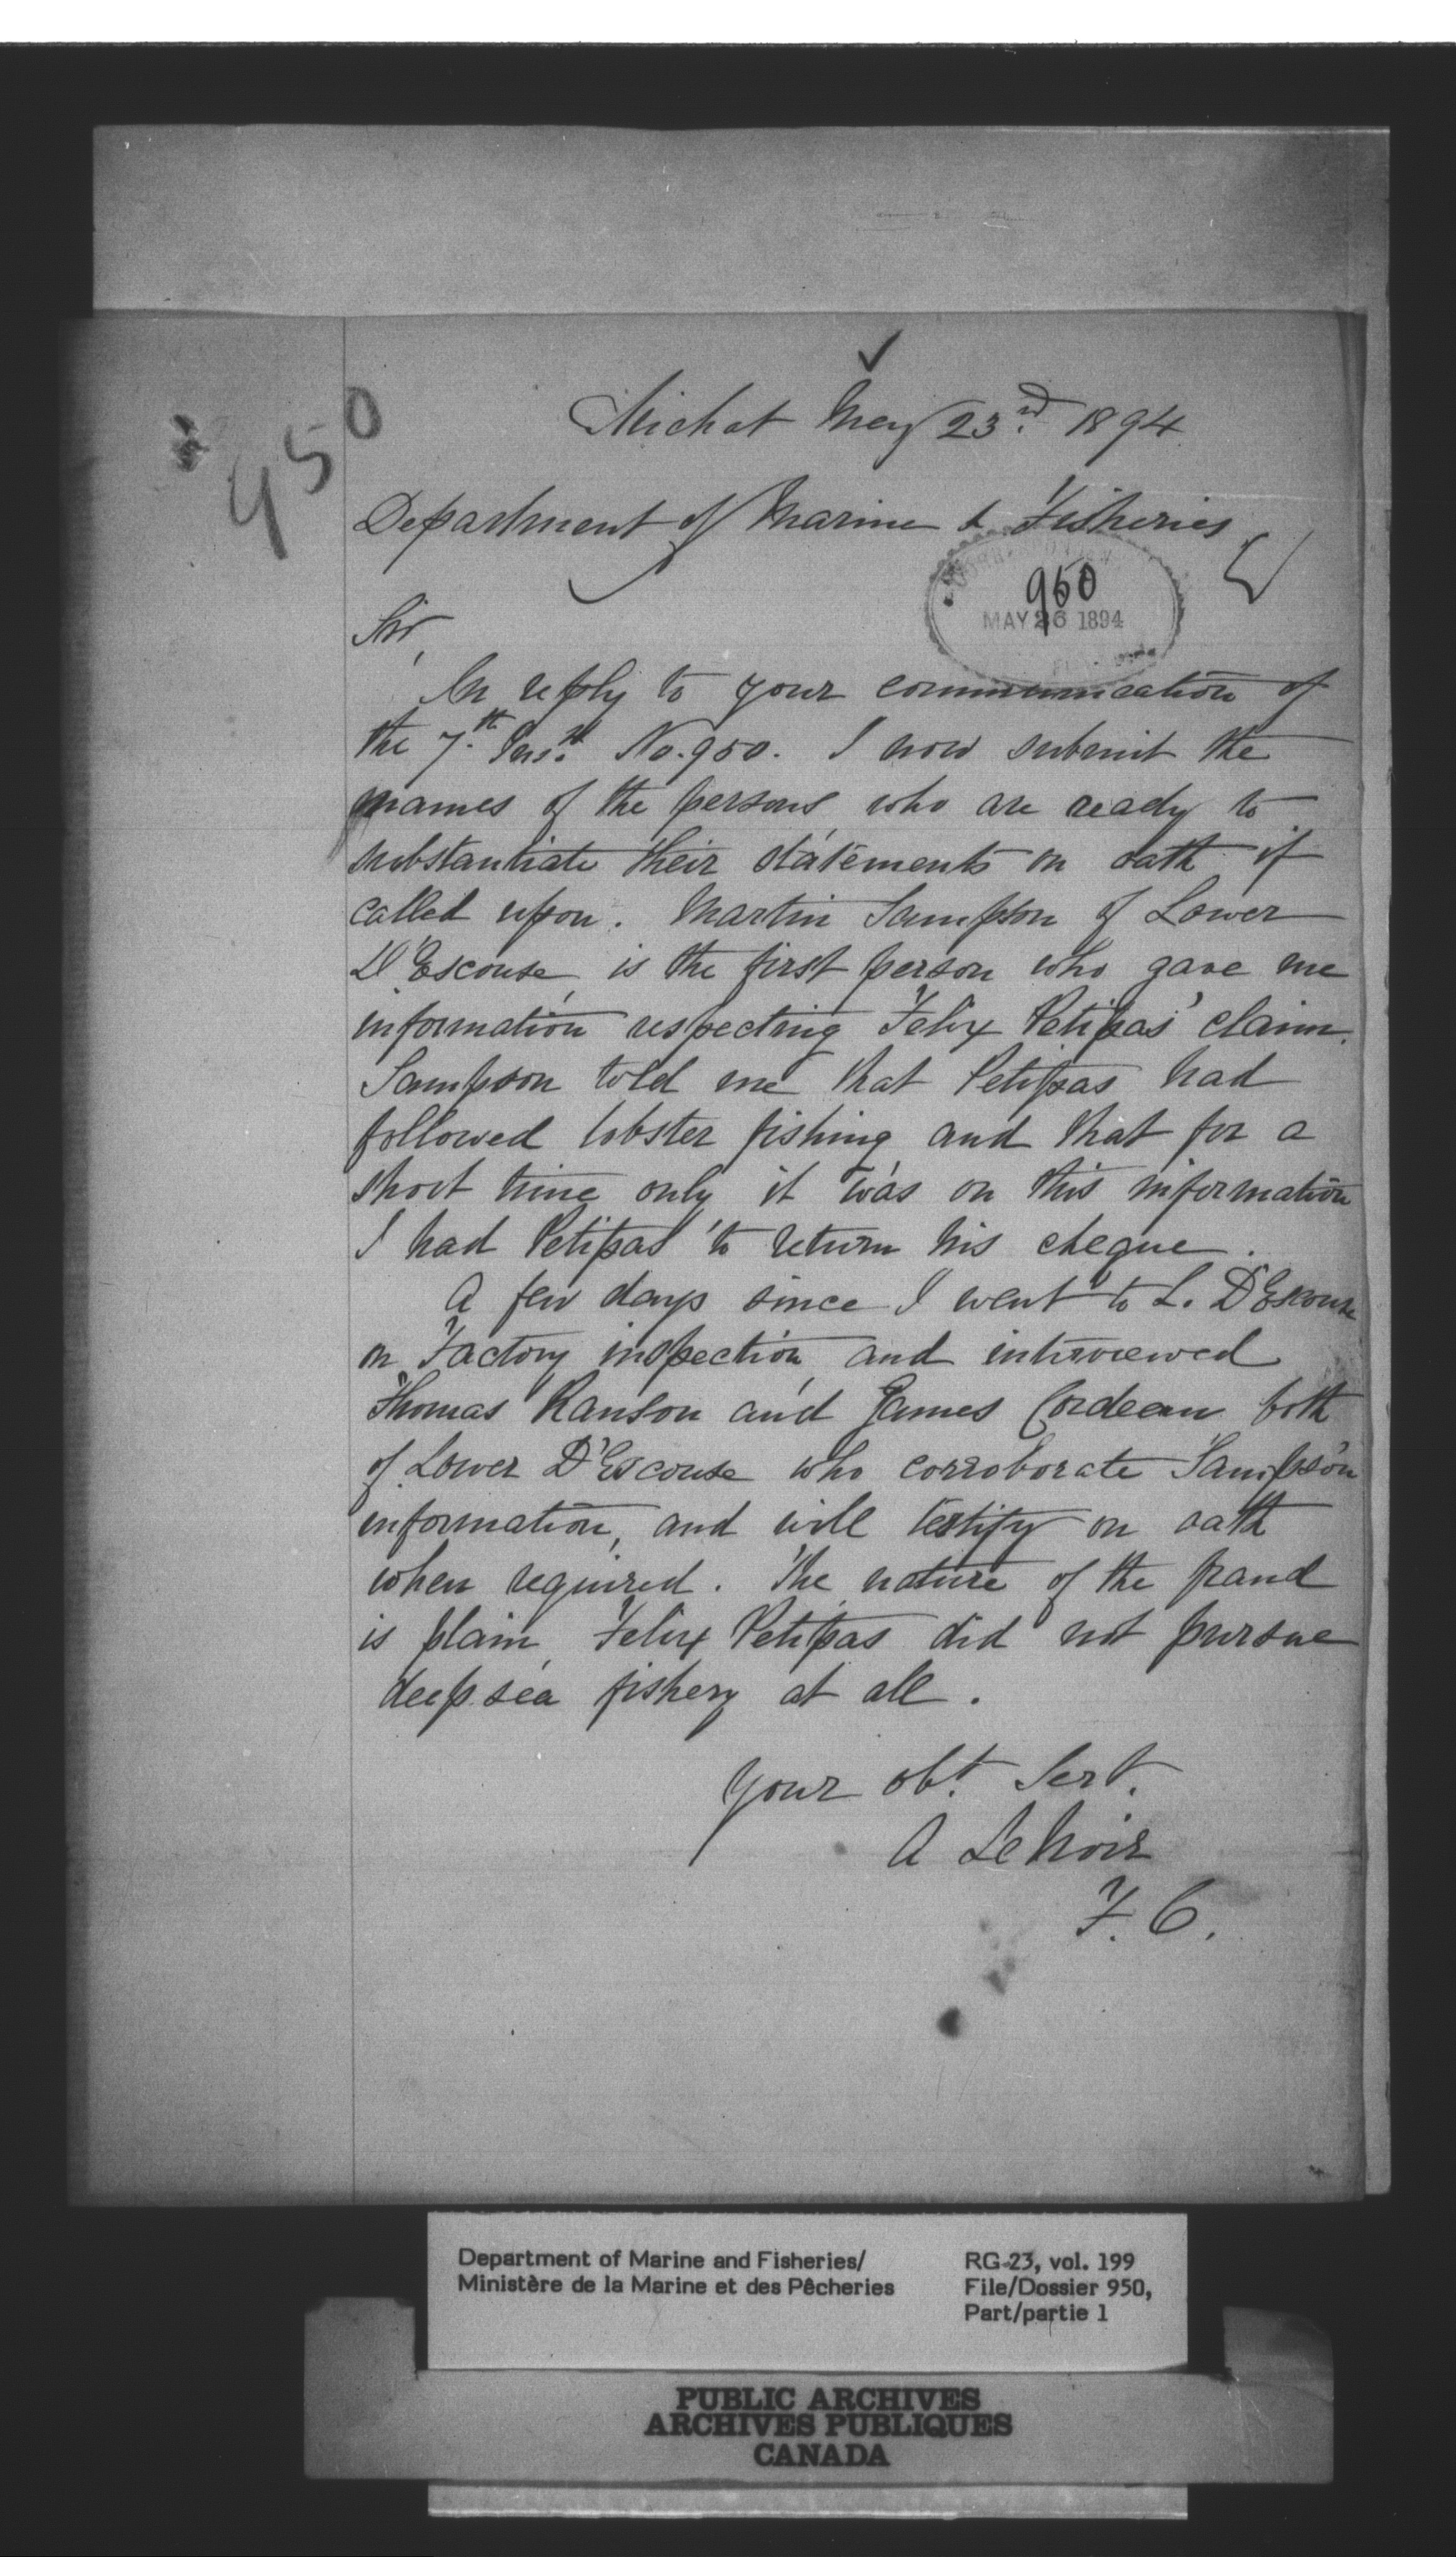 950
Arichat May 23rd 1894
Department of Marine & Fisheries
950
MAY 26 1894
Sir,
In reply to your communication of
the 7th Inst. No. 950. I now submit the
names of the persons who are ready to
substantiate their statements on oath if
called upon. Martin Sampson of Lower
D'Escouse, is the first person who gave me
information respecting Felix Petipas' claim.
Sampson told me that Petipas had
followed lobster fishing and that for a
short time only it was on this information
I had Petipas to return his cheque.
A few days since I went to L. D'Escouse
on Factory inspection, and interviewed
Thomas Ranson and James Cordeau both
of Lower D'Escouse who corroborate Sampson
information, and will testify on oath
when required. The nature of the fraud
is plain, Felix Petipas did not pursue
deep sea fishery at all.
Your obt. Sert.
A LeNoir
F. O.
Department of Marine and Fisheries/
Ministère de la Marine et des Pêcheries
RG-23, vol. 199
File/Dossier 950,
Part/partie 1
PUBLIC ARCHIVES
ARCHIVES PUBLIQUES
CANADA